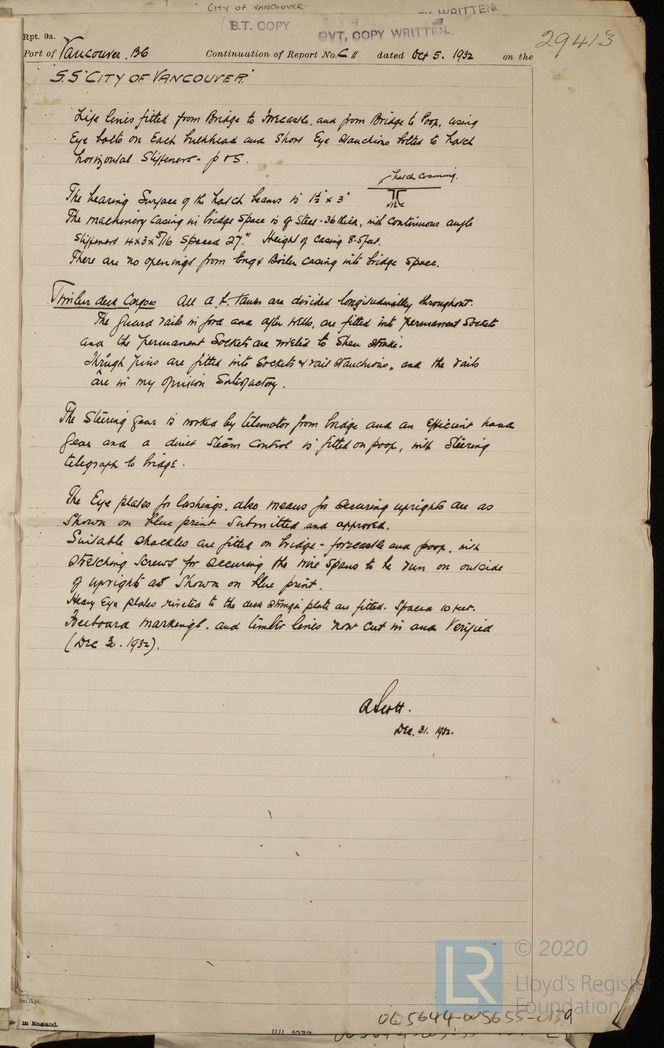 CITY OF VANCOUVER
B.T. COPY
GVT. COPY WRITTEN.
29413
Rpt. 9a.
Port of Vancouver. BC Continuation of Report No. C 11 dated Oct 5. 1932 on the
S.S "CITY OF VANCOUVER."
Life lines fitted from Bridge to Forecastle, and from Bridge to Poop, using
Eye bolts on Each bulkhead and Short Eye Stanchions bolted to hatch
horizontal Stiffeners - p & S.
hatch coaming.
The bearing Surface of the hatch beams is 1½" x 3"
The machinery casing in bridge space is of Steel .36 thick, with continuous angle
Stiffeners 4x3x 5/16 Spaced 27." Height of casing 8.5 feet.
There are no openings from Eng & Boiler casing into bridge Space.
Timber deck Cargoes All d.b. tanks are divided longitudinally throughout.
The guard rails in ford and after Wells, are fitted into permanent Sockets
and the permanent Sockets are riveted to Shear Strake.
Through pins are fitted into Sockets & rail Stanchions, and the rails
are in my opinion Satisfactory.
The Steering gear is worked by telemotor from bridge and an Efficient hand
gear and a direct Steam Control is fitted on poop, with Steering
telegraph to bridge.
The Eye plates for lashings, also means for securing uprights are as
Shown on blue print Submitted and approved.
Suitable Shackles are fitted on bridge - forecastle and poop, with
Stretching Screws for securing the wire spans to be run on outside
of uprights as Shown on blue print.
Heavy Eye plates riveted to the deck stringer plate are fitted. Spaced 10 feet.
Freeboard markings. and timber lines now cut in and Verified
(Dec 2. 1932).
A Scott.
Dec. 31. 1932.
in England.
© 2020
LR
Lloyd's Register
Foundation
005644-005655-0139